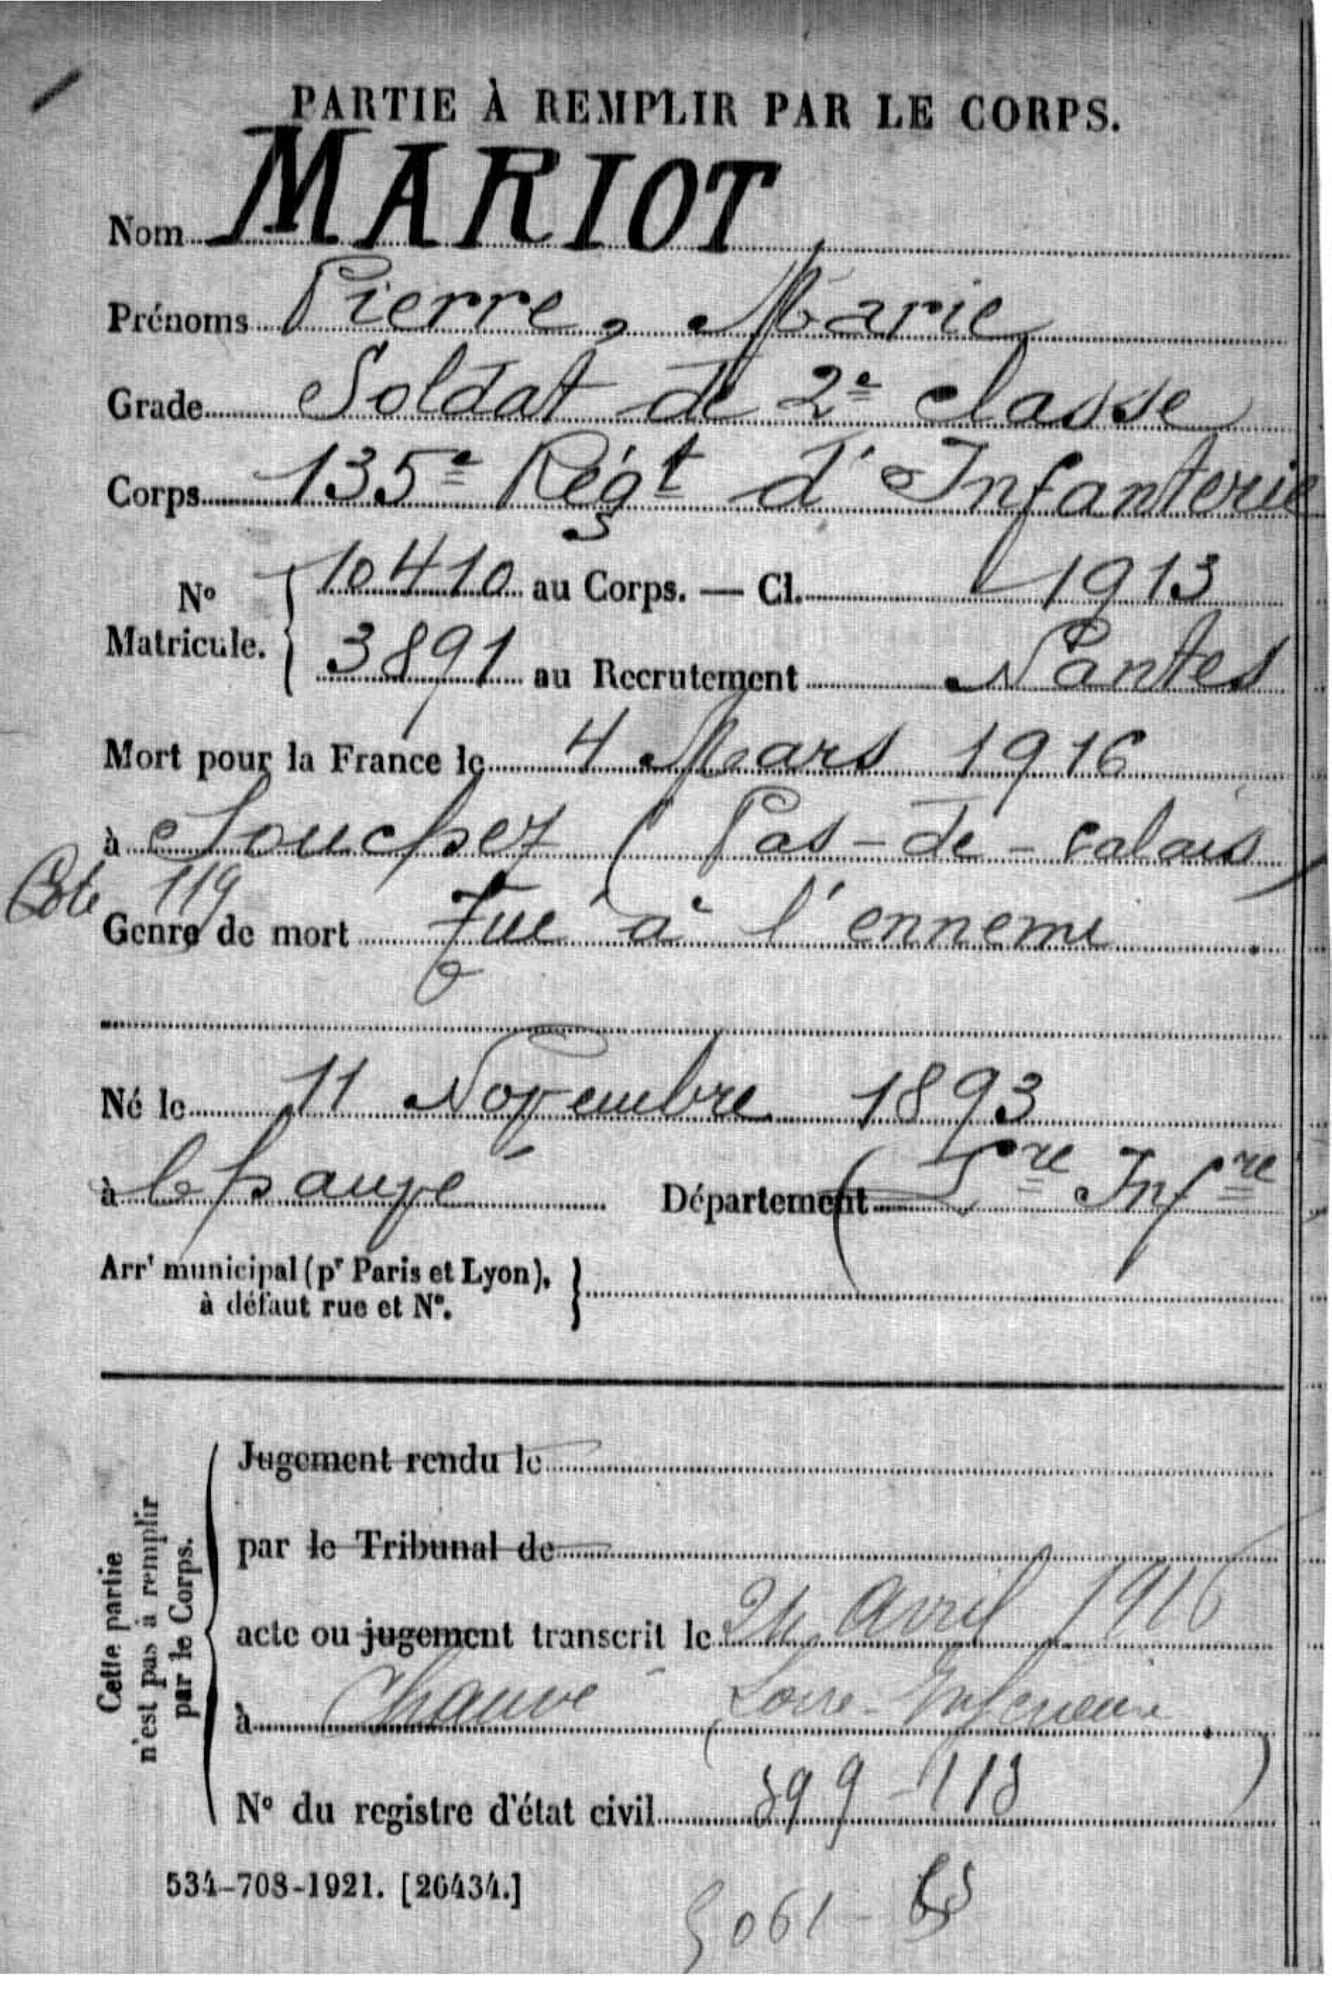 PARTIE À REMPLIR PAR LE CORPS.
Nom MARIOT
Prénoms Pierre, Marie
Grade Soldat de 2e classe
Corps 135e Régt d'Infanterie
No Matricule. { 10410 au Corps. — Cl. 1913
3891 au Recrutement Nantes
Mort pour la France le 4 Mars 1916
à Souchez (Pas-de-Calais)
Cote 119
Genre de mort Tué à l'ennemi
Né le 11 Novembre 1893
à Chauvé Département (Lre Infre
Arrt municipal (pr Paris et Lyon),
à défaut rue et No. }
Cette partie
n'est pas à remplir
par le Corps.
Jugement rendu le
par le Tribunal de
acte ou jugement transcrit le 24 Avril 1916
à Chauvé (Loire-Inférieure)
No du registre d'état civil 399-113
534-708-1921. [26434.]